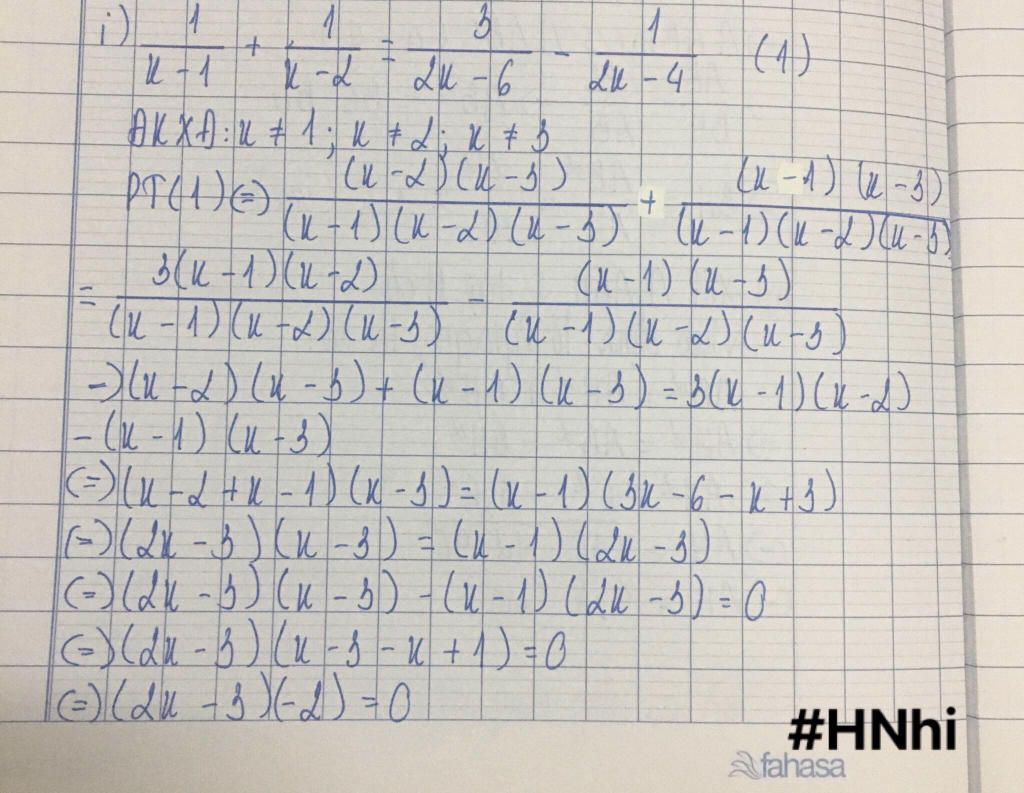 i) 1/(x - 1) + 1/(x - 2) = 3/(2x - 6) - 1/(2x - 4) (1)
ĐKXĐ: x ≠ 1; x ≠ 2; x ≠ 3
PT(1) (=) (x - 2)(x - 3)/(x - 1)(x - 2)(x - 3) + (x - 1)(x - 3)/(x - 1)(x - 2)(x - 3)
= 3(x - 1)(x - 2)/(x - 1)(x - 2)(x - 3) - (x - 1)(x - 3)/(x - 1)(x - 2)(x - 3)
-) (x - 2)(x - 3) + (x - 1)(x - 3) = 3(x - 1)(x - 2)
- (x - 1)(x - 3)
(=) (x - 2 + x - 1)(x - 3) = (x - 1)(3x - 6 - x + 3)
(=) (2x - 3)(x - 3) = (x - 1)(2x - 3)
(=) (2x - 3)(x - 3) - (x - 1)(2x - 3) = 0
(=) (2x - 3)(x - 3 - x + 1) = 0
(=) (2x - 3)(-2) = 0
#HNhi
fahasa